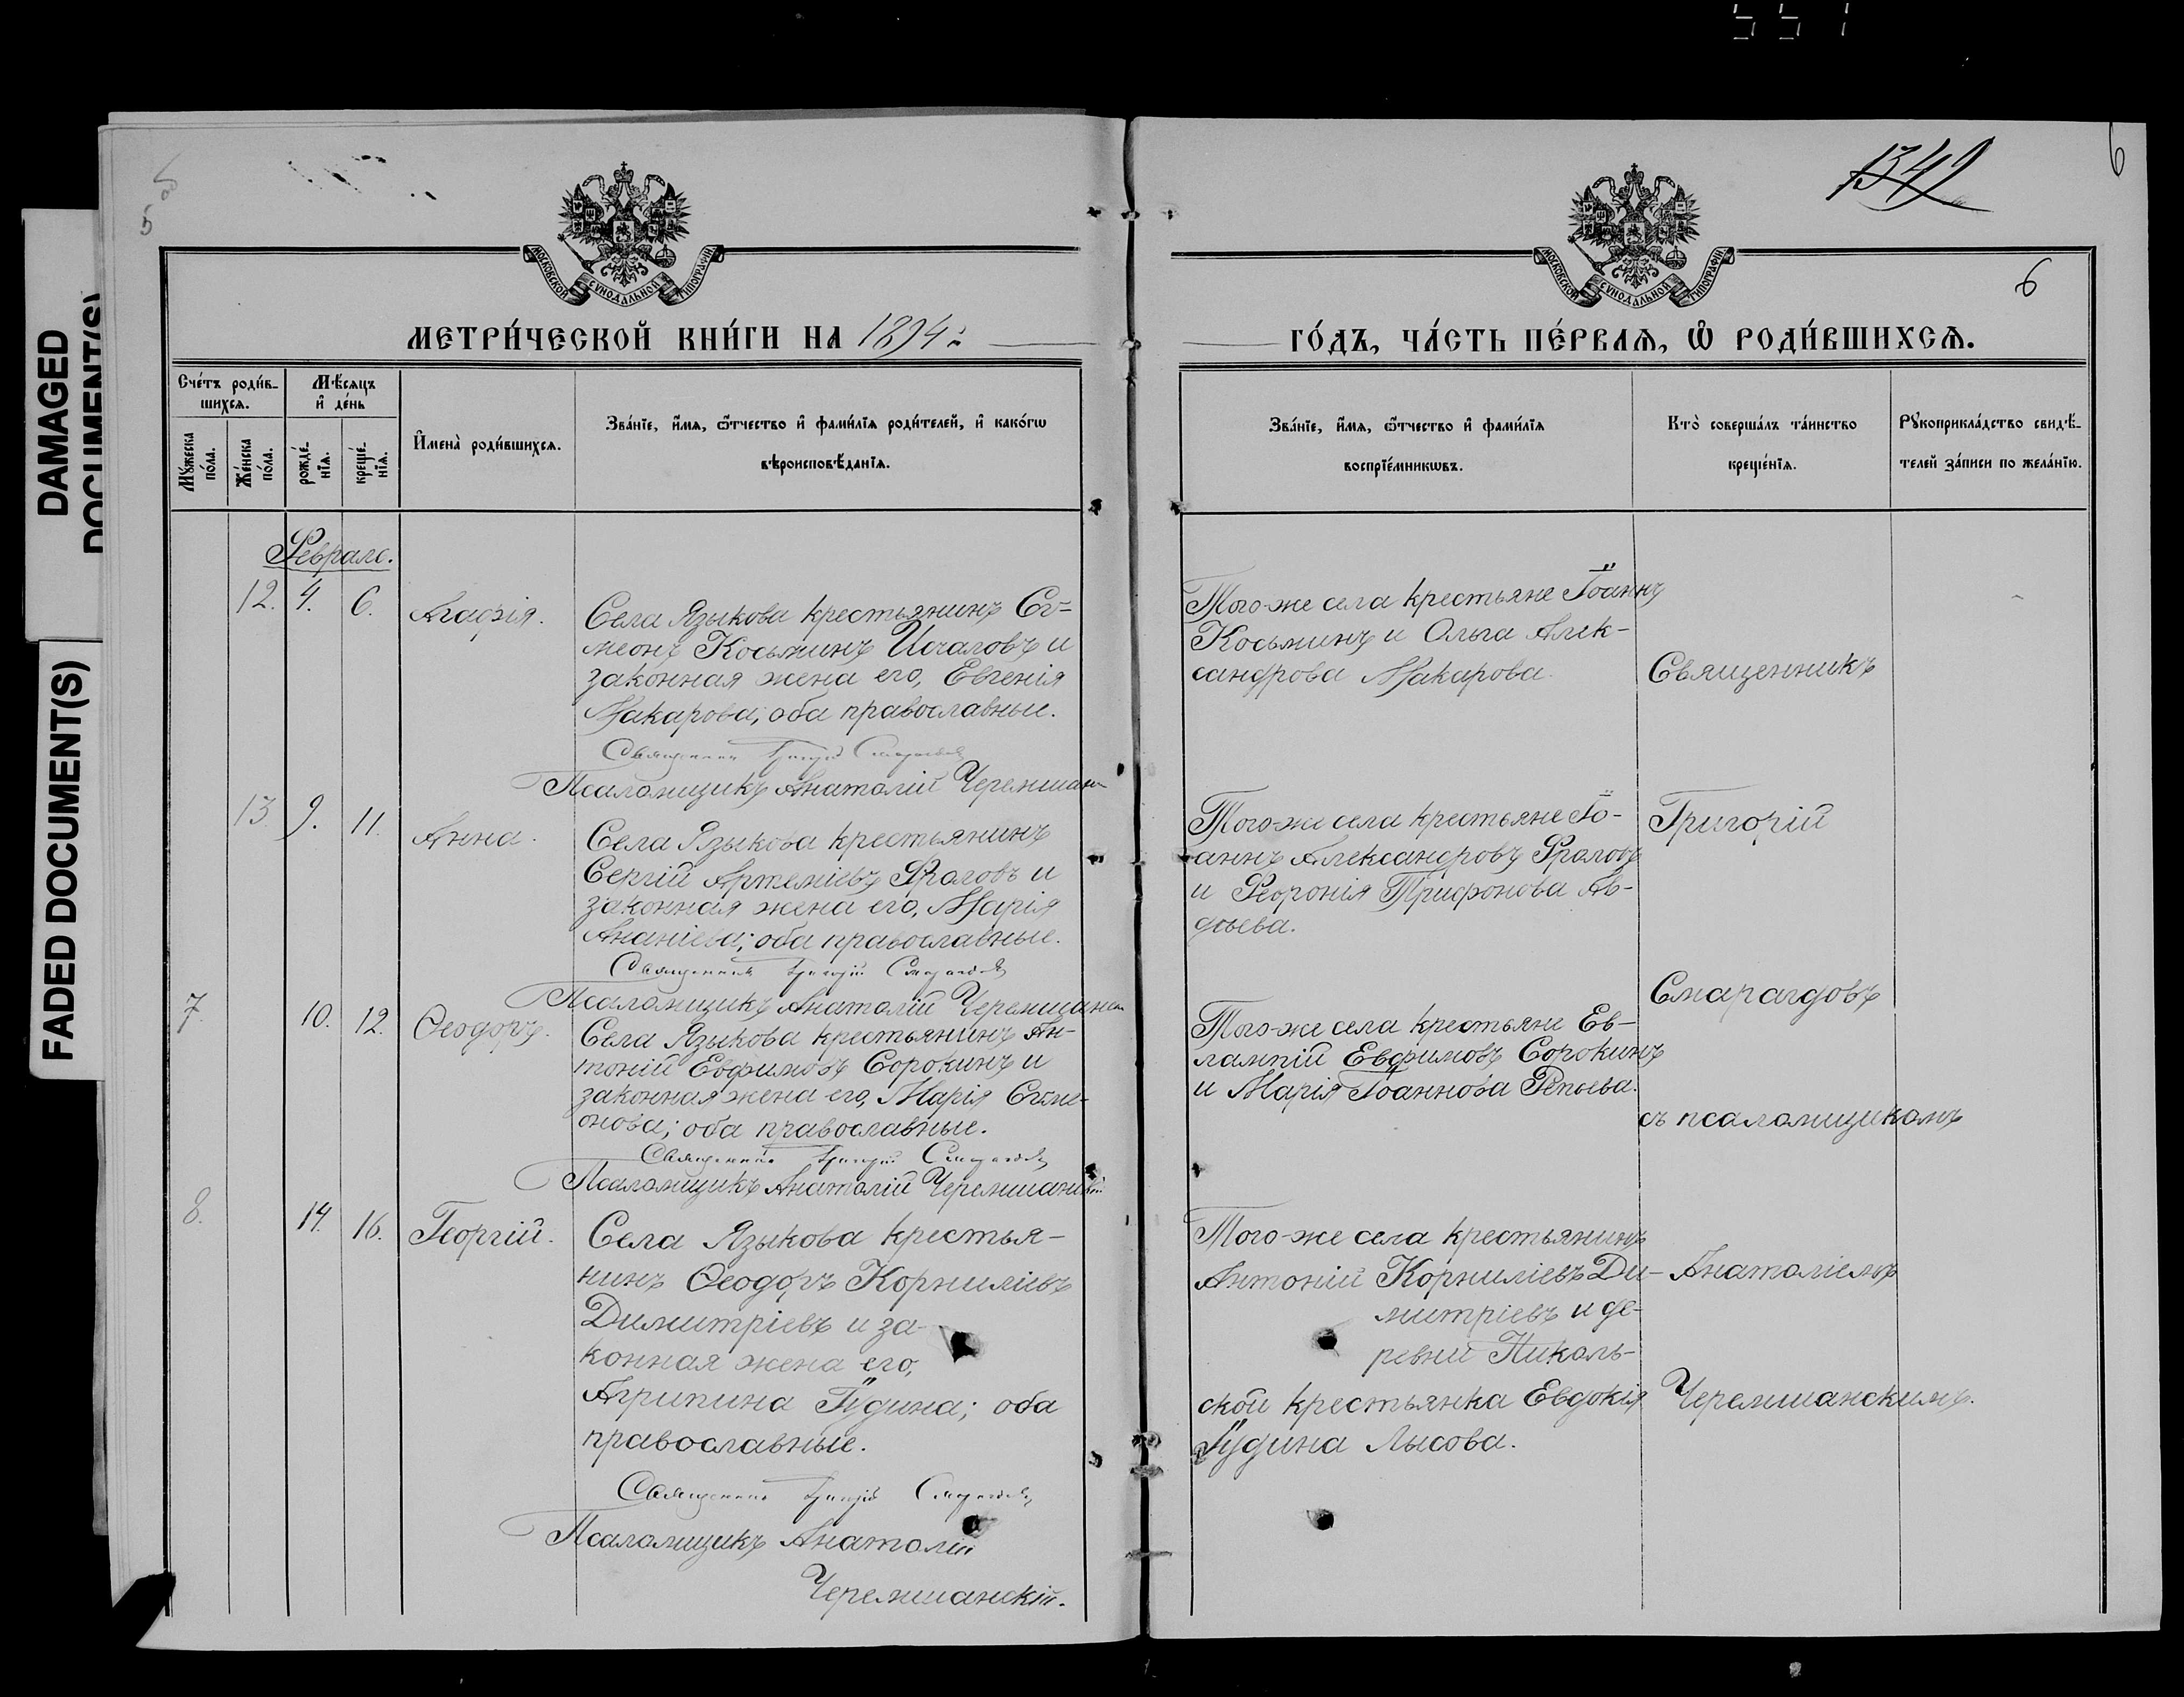 551
DAMAGED
DOCUMENT(S)
FADED DOCUMENT(S)
5
1342
6
6
МОСКОВСКОЙ СѴНОДАЛЬНОЙ ТИПОГРАФІИ
МОСКОВСКОЙ СѴНОДАЛЬНОЙ ТИПОГРАФІИ
МЕТРИ́ЧЕСКОЙ КНИ́ГИ НА 1894 г.
ГО́ДЪ, ЧА́СТЬ ПЕ́РВАѦ, Ѡ҆ РОДИ́ВШИХСѦ.
Сче́тъ роди́в-
шихсѧ.
Мꙋ́жеска
по́ла.
Же́нска
по́ла.
Мѣ́сѧцъ
и҆ де́нь
рожде́-
нїѧ.
креще́-
нїѧ.
И҆мена̀ роди́вшихсѧ.
Зва́нїе, и҆́мѧ, ѻ҆́тчество и҆ фами́лїѧ роди́телей, и҆ како́гѡ
вѣроисповѣ́данїѧ.
Зва́нїе, и҆́мѧ, ѻ҆́тчество и҆ фами́лїѧ
воспрїе́мникѡвъ.
Кто̀ соверша́лъ та́инство
креще́нїѧ.
Рꙋкоприкла́дство свидѣ́-
телей за́писи по жела́нїю.
Февраль.
12. 4. 6. Агаѳія.
Села Языкова крестьянинъ Сѵ-
меонъ Косьминъ Исчаловъ и
законная жена его, Евгенія
Макарова; оба православные.
Священникъ Григорій Смарагдовъ
Псаломщикъ Анатолій Черемшан
Того-же села крестьяне Іоаннъ
Косьминъ и Ольга Алек-
сандрова Макарова.
Священникъ
13 9. 11. Анна.
Села Языкова крестьянинъ
Сергій Артеміевъ Фроловъ и
законная жена его, Марія
Ананіева; оба православные.
Священникъ Григорій Смарагдовъ
Псаломщикъ Анатолій Черемшанск
Того-же села крестьяне Іо-
аннъ Александровъ Фроловъ
и Февронія Трифонова Ав-
дѣева.
Григорій
Смарагдовъ
7. 10. 12. Ѳеодоръ.
Села Языкова крестьянинъ Ан-
тоній Евфимовъ Сорокинъ и
законная жена его, Марія Сѵме-
онова; оба православные.
Священникъ Григорій Смарагдовъ
Псаломщикъ Анатолій Черемшанскій
Того-же села крестьяне Ев-
лампій Евфимовъ Сорокинъ
и Марія Іоаннова Репьева.
съ псаломщикомъ
8. 14. 16. Георгій.
Села Языкова крестья-
нинъ Ѳеодоръ Корниліевъ
Димитріевъ и за-
конная жена его,
Агрипина Іудина; оба
православные.
Священникъ Григорій Смарагдовъ
Псаломщикъ Анатолій
Черемшанскій.
Того-же села крестьянинъ
Антоній Корниліевъ Ди-
митріевъ и де-
ревни Николь-
ской крестьянка Евдокія
Іудина Лысова.
Анатоліемъ
Черемшанскимъ.